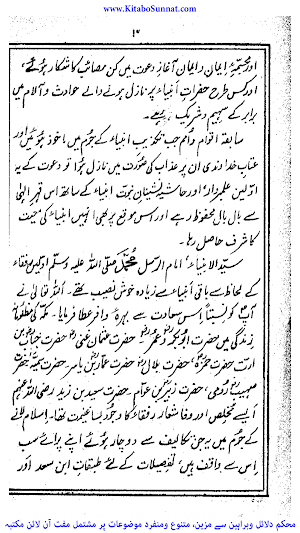 www.KitaboSunnat.com
۱۳
اور مجسمۂ ایمان و ایقان آغازِ دعوت میں کن مصائب کا شکار ہوئے،
اور کس طرح حضرات انبیاء پر نازل ہونے والے حوادث و آلام میں
برابر کے سہیم و شریک رہے۔
سابقہ اقوام و امم جب تکذیب انبیاء کے جُرم میں ماخوذ ہوئیں اور
عتابِ خداوندی ان پر عذاب کی صورت میں نازل ہوا تو دعوت کے یہ
اولین علمبردار اور حاشیہ نشینانِ نبوت انبیاء کے ساتھ اس قہرِ الٰہی
سے بال بال محفوظ رہے اور اس موقع پر بھی انہیں انبیاء کی معیت
کا شرف حاصل رہا۔
سیّد الانبیاء امام الرسل محمد صلی اللہ علیہ وسلم اولین رفقاء
کے لحاظ سے باقی انبیاء سے زیادہ خوش نصیب تھے۔ اللہ تعالیٰ نے
آپ کو نسبتاً اس سعادت سے بہرہ وافر عطا فرمایا۔ مکہ کی مظلومانہ
زندگی میں حضرت ابوبکر، عمر، حضرت عثمان غنی، حضرت خباب بن
ارت حضرت حمزہ، حضرت بلال، حضرت عمار بن یاسر، حضرت سمیہ، حضرت
صہیب رومی، حضرت زبیر بن عوام، حضرت سعید بن زید رضی اللہ عنہم
ایسے مخلص اور وفا شعار رفقاء کا وجود بسا غنیمت تھا۔ اسلام لانے
کے جُرم میں یہ جن تکالیف سے دوچار ہوئے اپنے پرائے سب
اس سے واقف ہیں، تفصیلات کے لئے طبقات ابن سعد اور
محکم دلائل وبراہین سے مزین، متنوع ومنفرد موضوعات پر مشتمل مفت آن لائن مکتبہ